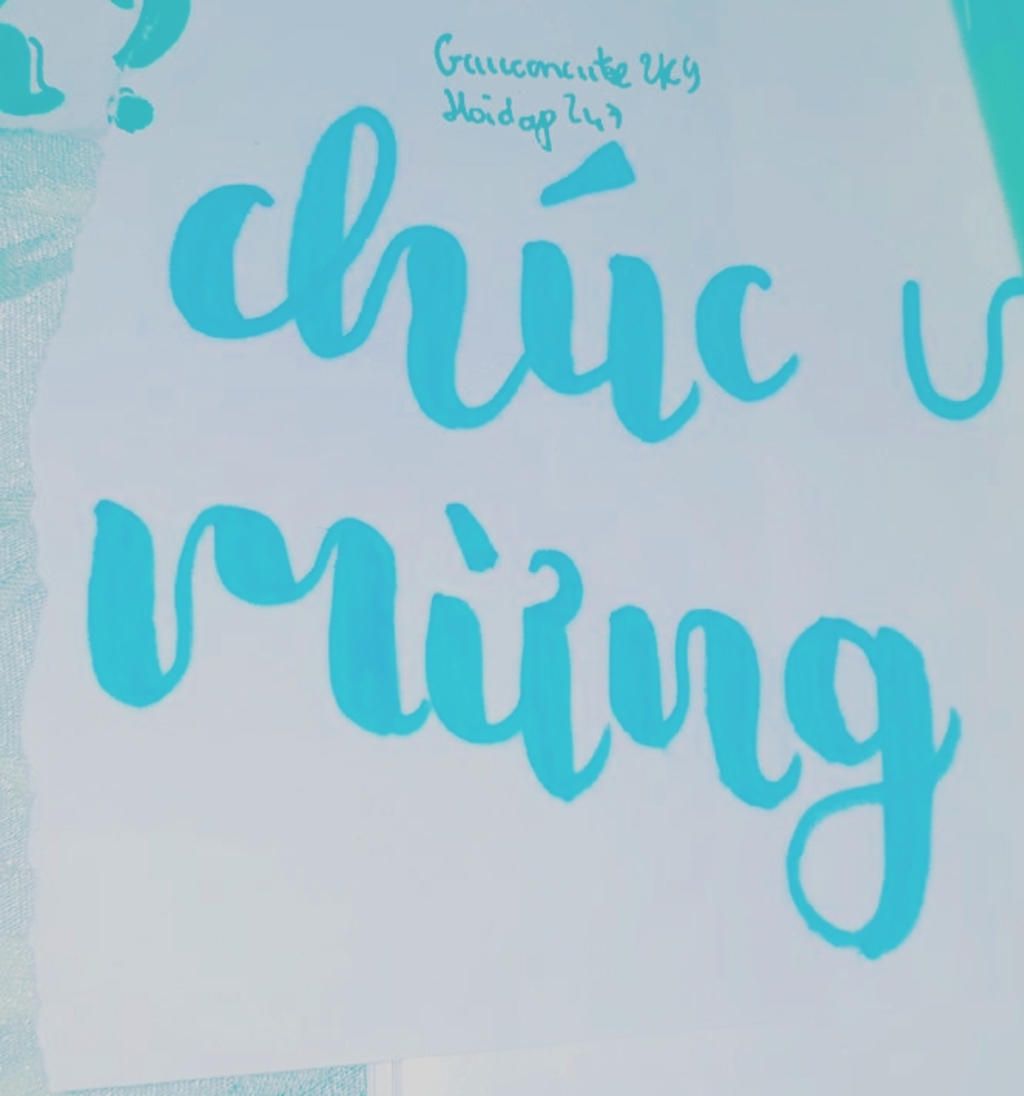 Gauconcute 2K9
Hoidap 247
chúc
mừng